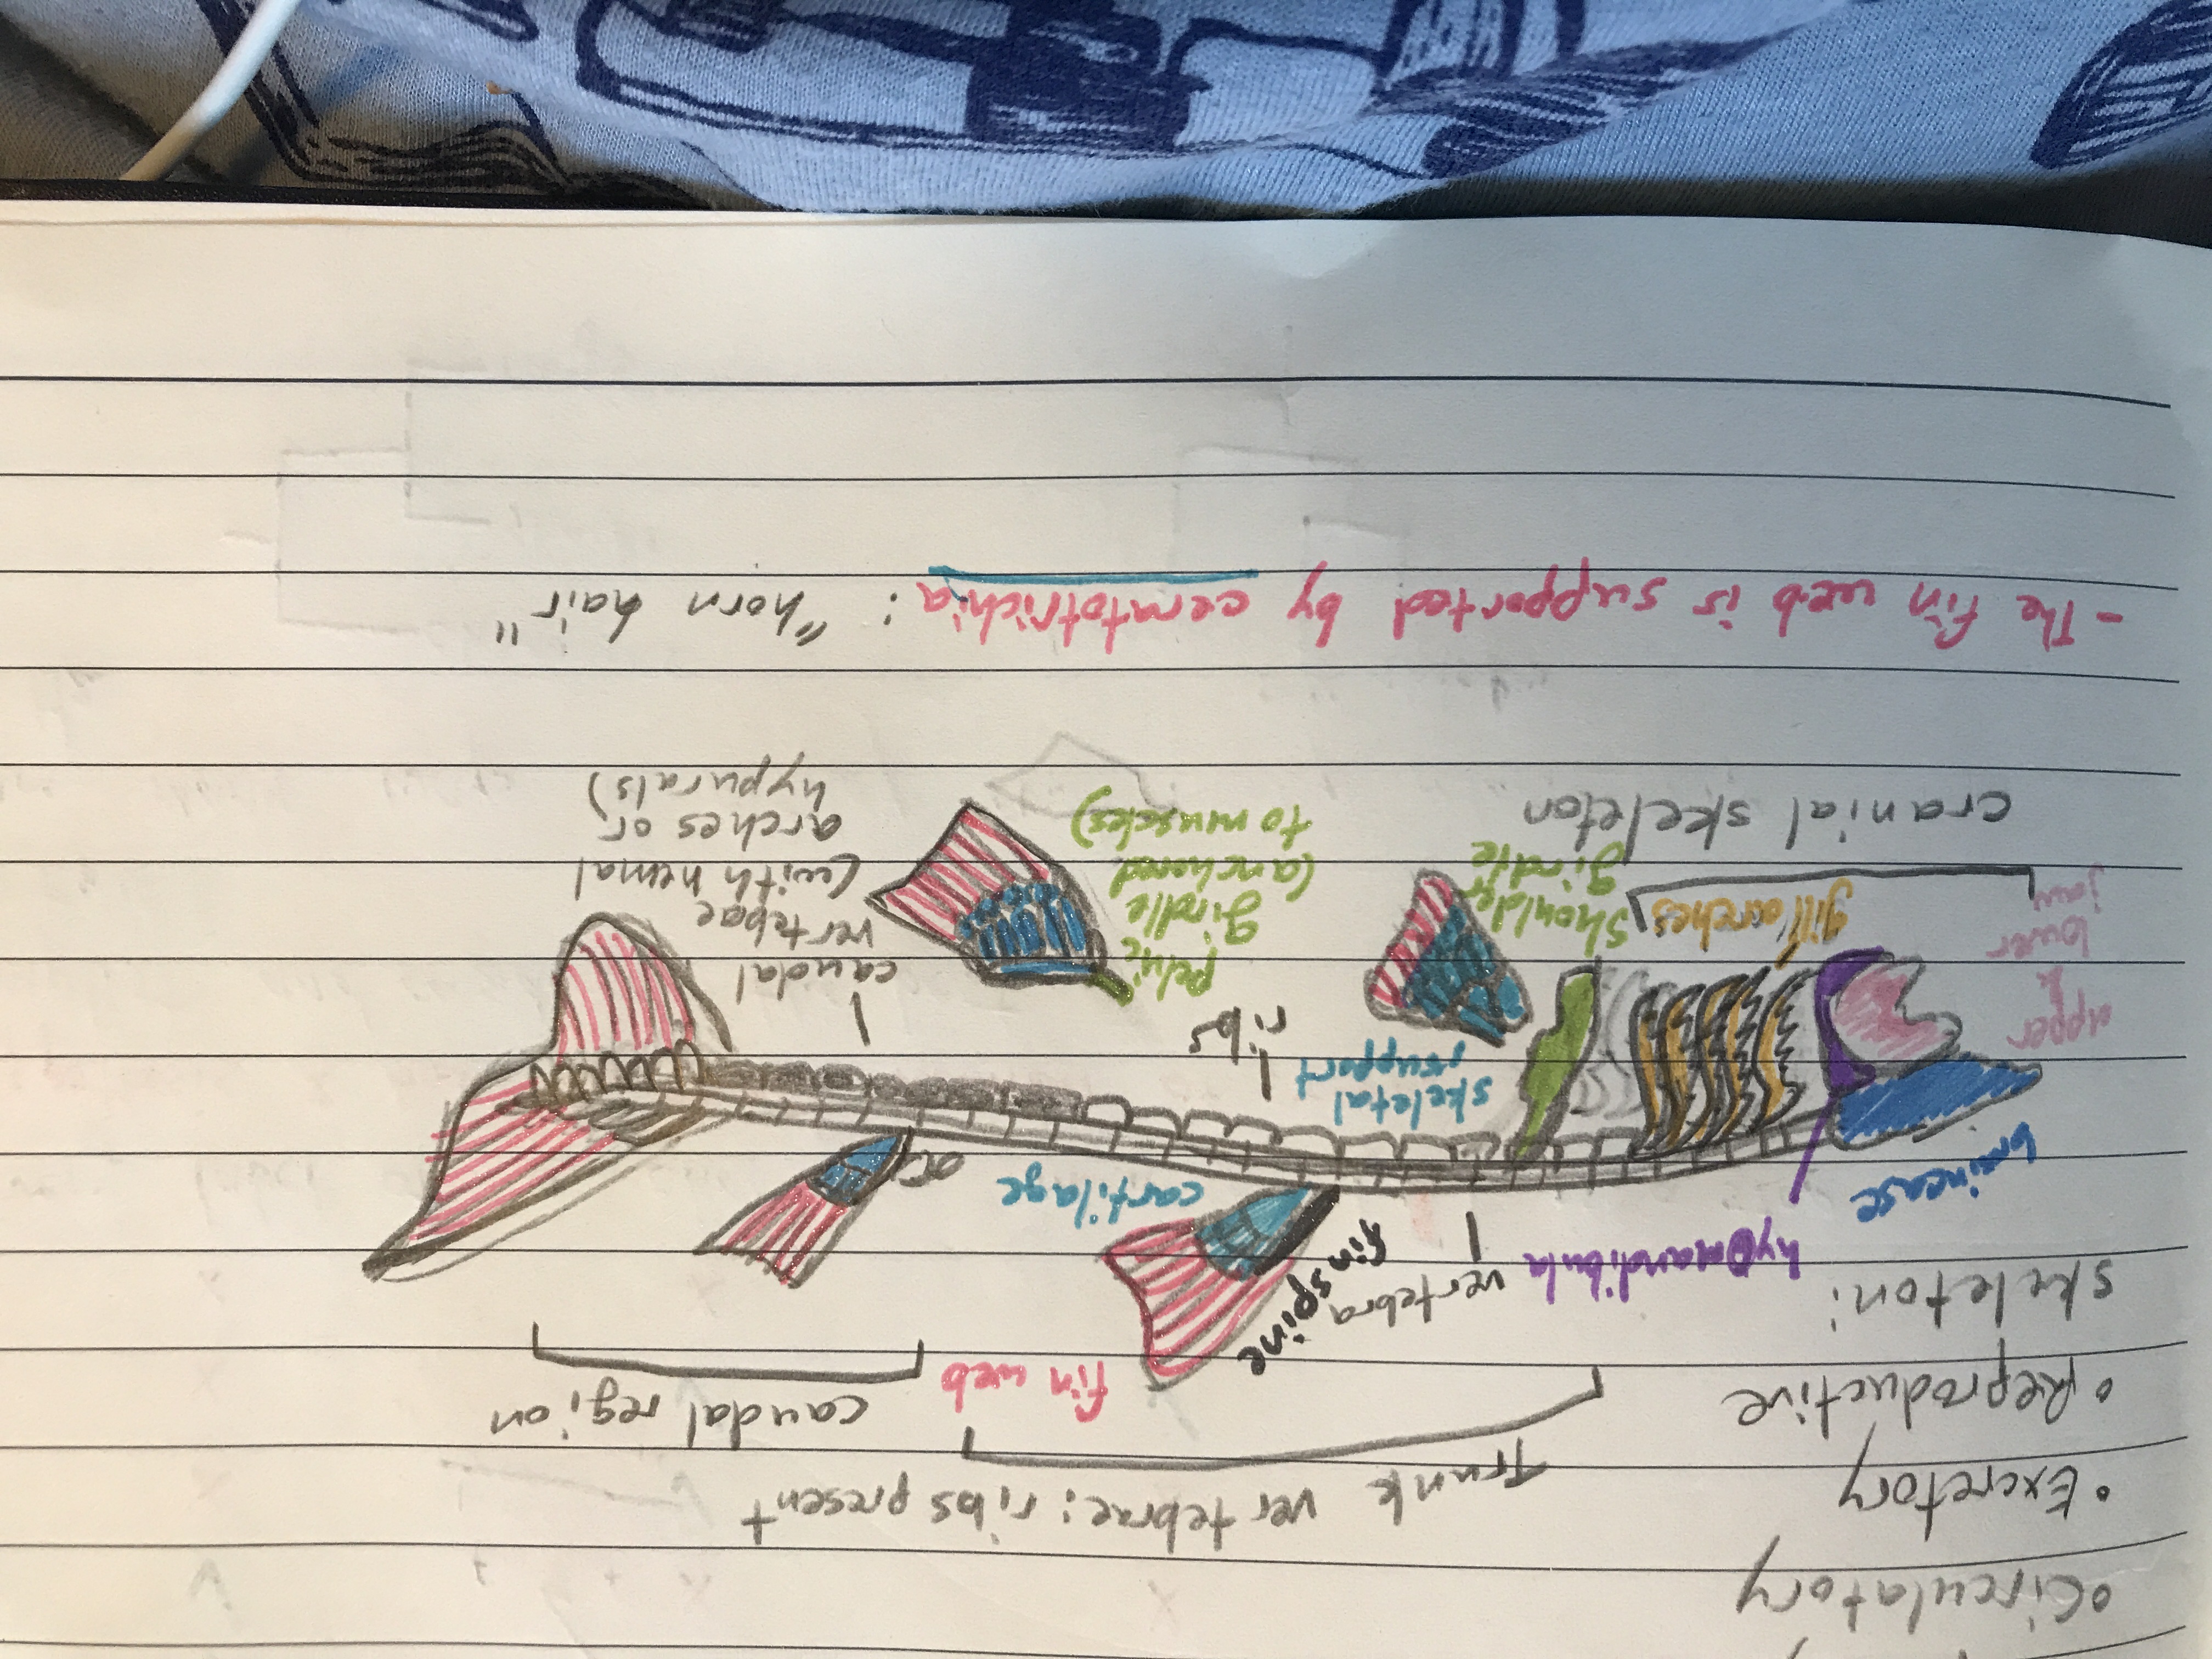 o Circulatory
• Excretory
o Reproductive
skeleton:
Trunk vertebrae: ribs present
caudal region
fin web
fin spine
vertebra
hyomandibula
braincase
cartilage
skeletal
support
ribs
upper
&
lower
jaw
gill arches
shoulder
girdle
cranial skeleton
pelvic
girdle
(anchored
to muscles)
caudal
vertebae
(with hemal
arches or
hypurals)
- The fin web is supported by ceratotrichia : "horn hair"